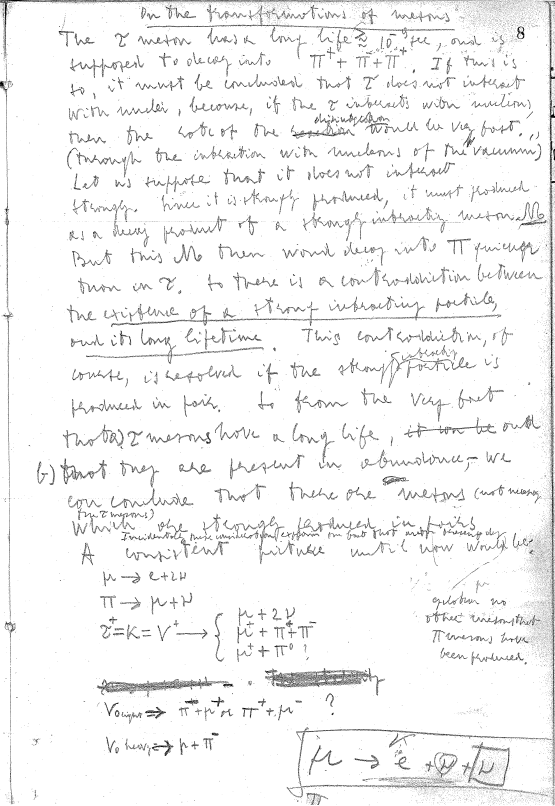 On the transformations of mesons
8
The τ meson has a long life ≳ 10⁻⁹ sec, and is
supposed to decay into π⁺ + π + π⁺. If this is
so, it must be concluded that τ does not interact
with nuclei, because, if the τ interacts with nucleons,
then the rate of the disintegration would be very fast.
(through the interaction with nucleons of the "vacuum")
Let us suppose that it does not interact
strongly. Since it is strongly produced, it must produced
as a decay product of a strongly interacting meson M.
But this M then would decay into π quicker
than in τ. So there is a contradiction between
the existence of a strong interacting particle,
and its long lifetime. This contradiction, of
course, is resolved if the strongly interacting particle is
produced in pair. So from the very fact
that a) τ mesons have a long life, it can be and
b) that they are present in abundance, we
can conclude that there are mesons (not necessary
the τ mesons)
which are strongly produced in pairs
Incidentally
A consistent picture until now would be:
μ → e + 2ν
π → μ + ν
τ⁺ = K = V⁺ → { μ + 2ν
μ⁺ + π⁺ + π⁻
μ⁺ + π⁰ !
no
other mesons than
π mesons have
been produced.
V₀ → π⁺ + μ⁺ or π⁺ + μ⁻ ?
V₀ heavy → p + π⁻
μ → e + ν + ν
π